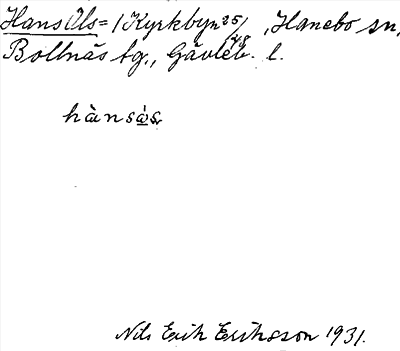 Hans Ols= /Kyrkbyn 25/28, Hanebo sn,
Bollnäs tg., Gävleb. l.
hànsás
Nils Erik Eriksson 1931.